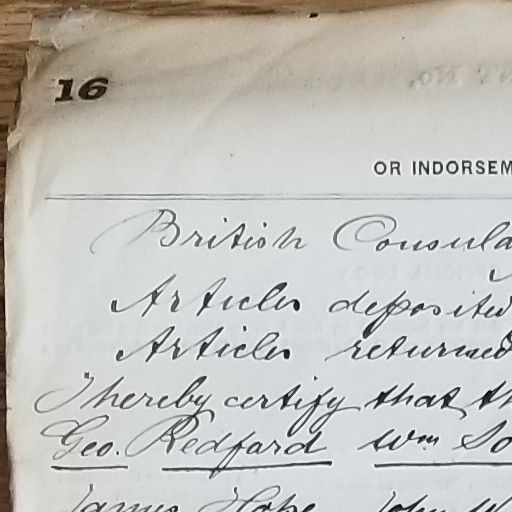 16
OR INDORSEM
British Consula
Articles deposited
Articles returned
I hereby certify that th
Geo. Redfard Wm So
James Hope John W